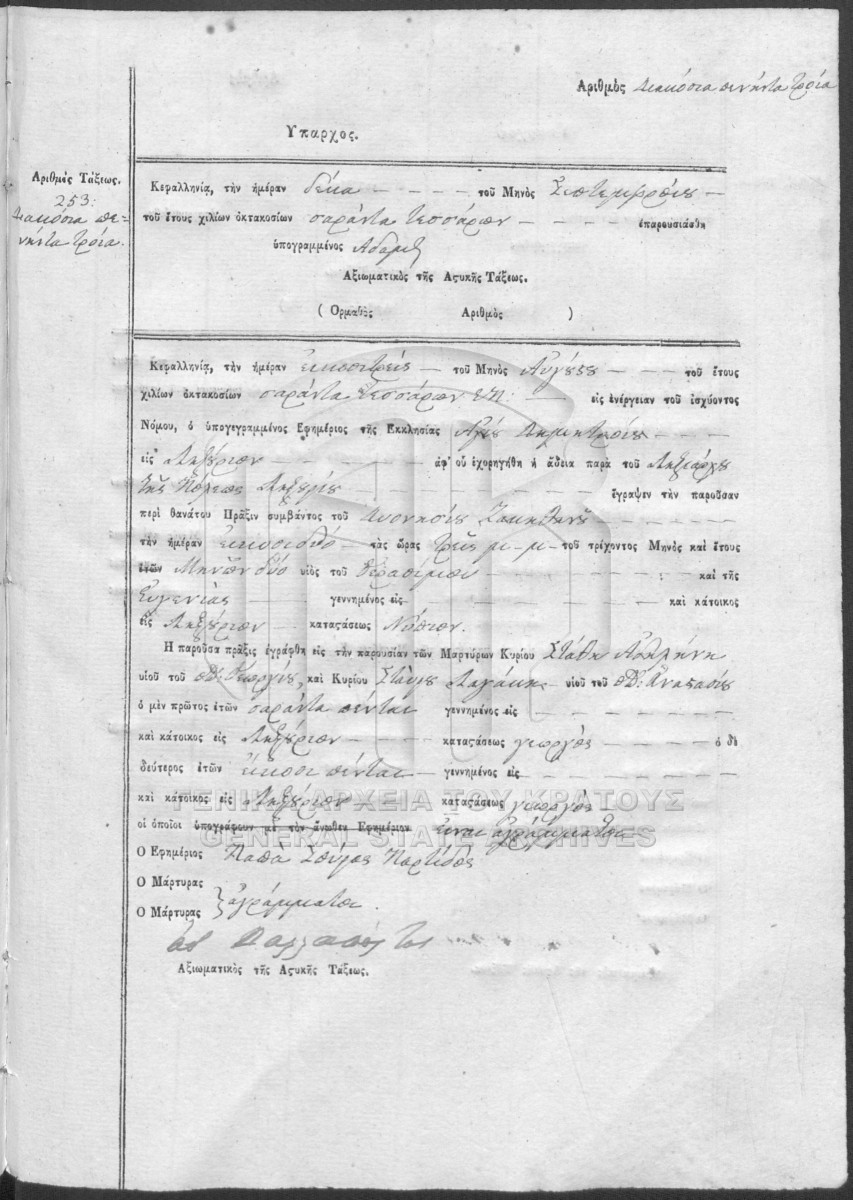 Αριθμὸς Διακόσια πενήντα τρία
Υπαρχος.
Αριθμὸς Τάξεως.
253:
Διακόσια πε-
νήντα τρία.
Κεφαλληνίᾳ, τὴν ἡμέραν δέκα - - - - τοῦ Μηνὸς Σεπτεμβρίου -
τοῦ ἔτους χιλίων ὀκτακοσίων σαράντα τεσσάρων - - - - ἐπαρουσιάσθη
ὑπογραμμένος
Αξιωματικὸς τῆς Αςυκῆς Τάξεως.
( Ορμαθὸς Αριθμὸς )
Κεφαλληνίᾳ, τὴν ἡμέραν εἰκοσιτρεῖς - τοῦ Μηνὸς Αὐγούςου - - τοῦ ἔτους
χιλίων ὀκτακοσίων σαράντα τεσσάρων ΕΠ: - εἰς ἐνέργειαν τοῦ ἰσχύοντος
Νόμου, ὁ ὑπογεγραμμένος Εφημέριος τῆς Εκκλησίας Αγίου Δημητρίου - - - -
εἰς Ληξούριον - - - - - ἀφ' οὗ ἐχορηγήθη ἡ ἄδεια παρὰ τοῦ Ληξιάρχου
τῆς Πόλεως Ληξουρίου - - - - - - ἔγραψεν τὴν παροῦσαν
περὶ θανάτου Πρᾶξιν συμβάντος τοῦ Διονησίου - - - - -
τὴν ἡμέραν εἰκοσιδύο - τὰς ὥρας τρεῖς μ-μ- τοῦ τρέχοντος Μηνὸς καὶ ἔτους
ἐτῶν Μηνῶν δύο υἱὸς τοῦ Γερασίμου - - - - : - καὶ τῆς
Εὐγενίας - - - γεννημένος εἰς - - - - - - καὶ κάτοικος
εἰς Ληξούριον - καταςάσεως Νήπιον.
Η παροῦσα πρᾶξις ἐγράφθη εἰς τὴν παρουσίαν τῶν Μαρτύρων Κυρίου Στάθη
υἱοῦ τοῦ Γεωργίου, καὶ Κυρίου υἱοῦ τοῦ Αναςασίου
ὁ μὲν πρῶτος ἐτῶν σαράντα πένται γεννημένος εἰς - - - - -
καὶ κάτοικος εἰς Ληξούριον - - - καταςάσεως γεωργὸς - - - - ὁ δὲ
δεύτερος ἐτῶν εἴκοσι πένται - γεννημένος εἰς - - - - - -
καὶ κάτοικος εἰς Ληξούριον καταςάσεως γεωργὸς
οἱ ὁποῖοι ὑπογράφουν μὲ τὸν ἄνωθεν Εφημέριον εἶναι ἀγράμματοι
Ο Εφημέριος Παπᾶ
Ο Μάρτυρας
Ο Μάρτυρας } ἀγράμματοι.
Αξιωματικὸς τῆς Αςυκῆς Τάξεως.
ΓΕΝΙΚΑ ΑΡΧΕΙΑ ΤΟΥ ΚΡΑΤΟΥΣ
GENERAL STATE ARCHIVES